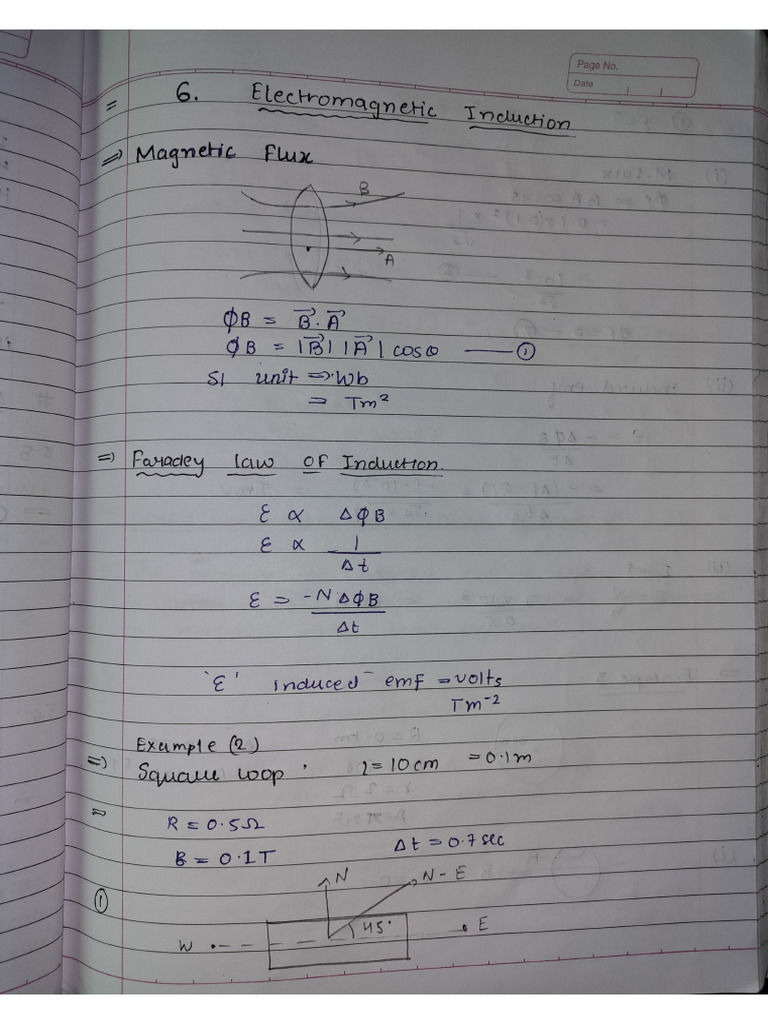 Page No.
Date
= 6. Electromagnetic Induction
=> Magnetic Flux
B
A
ΦB = B⃗.A⃗
ΦB = |B⃗| |A⃗| cosθ —— ①
SI unit => Wb
= Tm²
=> Faradey law OF Induction.
ε ∝ ΔΦB
ε ∝ 1/Δt
ε = -NΔΦB/Δt
'ε' induced emf = volts
Tm⁻²
Example (2)
=> Square loop · l = 10 cm = 0.1m
=> R = 0.5Ω
B = 0.1T Δt = 0.7 sec
① N N-E
W 45° E